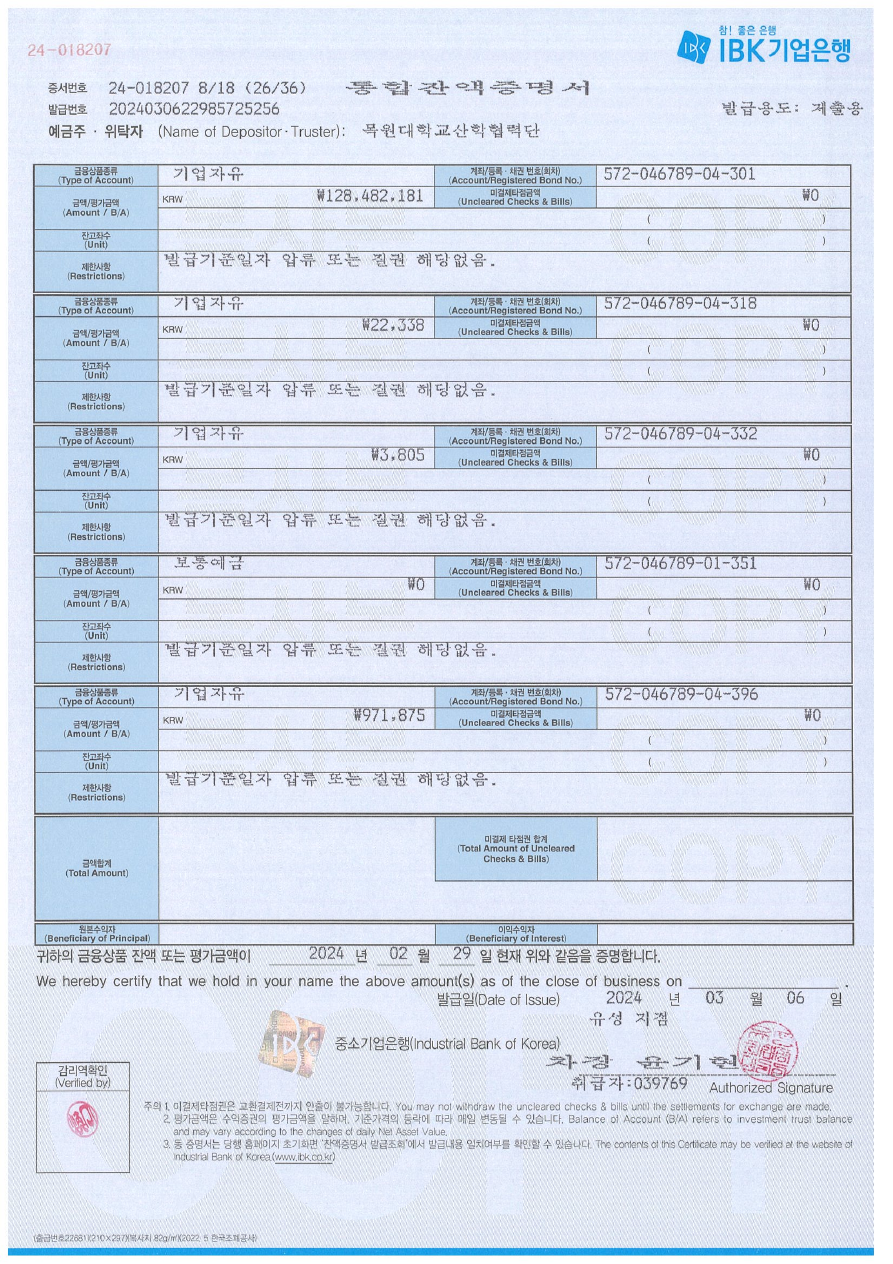 24-018207
참! 좋은 은행
IBK 기업은행
증서번호 24-018207 8/18 (26/36) 통합잔액증명서
발급번호 2024030622985725256 발급용도: 제출용
예금주 · 위탁자 (Name of Depositor · Truster): 목원대학교산학협력단
금융상품종류 (Type of Account) 기업자유 계좌/등록 · 채권 번호(회차) (Account/Registered Bond No.) 572-046789-04-301
금액/평가금액 (Amount / B/A) KRW ₩128,482,181 미결제타점금액 (Uncleared Checks & Bills) ₩0
( )
잔고좌수 (Unit) ( )
제한사항 (Restrictions) 발급기준일자 압류 또는 질권 해당없음.
금융상품종류 (Type of Account) 기업자유 계좌/등록 · 채권 번호(회차) (Account/Registered Bond No.) 572-046789-04-318
금액/평가금액 (Amount / B/A) KRW ₩22,338 미결제타점금액 (Uncleared Checks & Bills) ₩0
( )
잔고좌수 (Unit) ( )
제한사항 (Restrictions) 발급기준일자 압류 또는 질권 해당없음.
금융상품종류 (Type of Account) 기업자유 계좌/등록 · 채권 번호(회차) (Account/Registered Bond No.) 572-046789-04-332
금액/평가금액 (Amount / B/A) KRW ₩3,805 미결제타점금액 (Uncleared Checks & Bills) ₩0
( )
잔고좌수 (Unit) ( )
제한사항 (Restrictions) 발급기준일자 압류 또는 질권 해당없음.
금융상품종류 (Type of Account) 보통예금 계좌/등록 · 채권 번호(회차) (Account/Registered Bond No.) 572-046789-01-351
금액/평가금액 (Amount / B/A) KRW ₩0 미결제타점금액 (Uncleared Checks & Bills) ₩0
( )
잔고좌수 (Unit) ( )
제한사항 (Restrictions) 발급기준일자 압류 또는 질권 해당없음.
금융상품종류 (Type of Account) 기업자유 계좌/등록 · 채권 번호(회차) (Account/Registered Bond No.) 572-046789-04-396
금액/평가금액 (Amount / B/A) KRW ₩971,875 미결제타점금액 (Uncleared Checks & Bills) ₩0
( )
잔고좌수 (Unit) ( )
제한사항 (Restrictions) 발급기준일자 압류 또는 질권 해당없음.
금액합계 (Total Amount) 미결제 타점권 합계 (Total Amount of Uncleared Checks & Bills)
COPY
원본수익자 (Beneficiary of Principal) 이익수익자 (Beneficiary of Interest)
귀하의 금융상품 잔액 또는 평가금액이 2024 년 02 월 29 일 현재 위와 같음을 증명합니다.
We hereby certify that we hold in your name the above amount(s) as of the close of business on .
발급일(Date of Issue) 2024 년 03 월 06 일
유성 지점
중소기업은행(Industrial Bank of Korea)
차장 윤기현
취급자:039769 Authorized Signature
감리역확인 (Verified by)
주의 1. 미결제타점권은 교환결제전까지 인출이 불가능합니다. You may not withdraw the uncleared checks & bills until the settlements for exchange are made.
2. 평가금액은 수익증권의 평가금액을 말하며, 기준가격의 등락에 따라 매일 변동될 수 있습니다. Balance of Account (B/A) refers to investment trust balance
and may vary according to the changes of daily Net Asset Value.
3. 동 증명서는 당행 홈페이지 초기화면 "잔액증명서 발급조회"에서 발급내용 일치여부를 확인할 수 있습니다. The contents of this Certificate may be verified at the website of
Industrial Bank of Korea.(www.ibk.co.kr)
COPY
(출급번호22681)(210×297)(복사지 82g/㎡)(2022. 5 한국조폐공사)